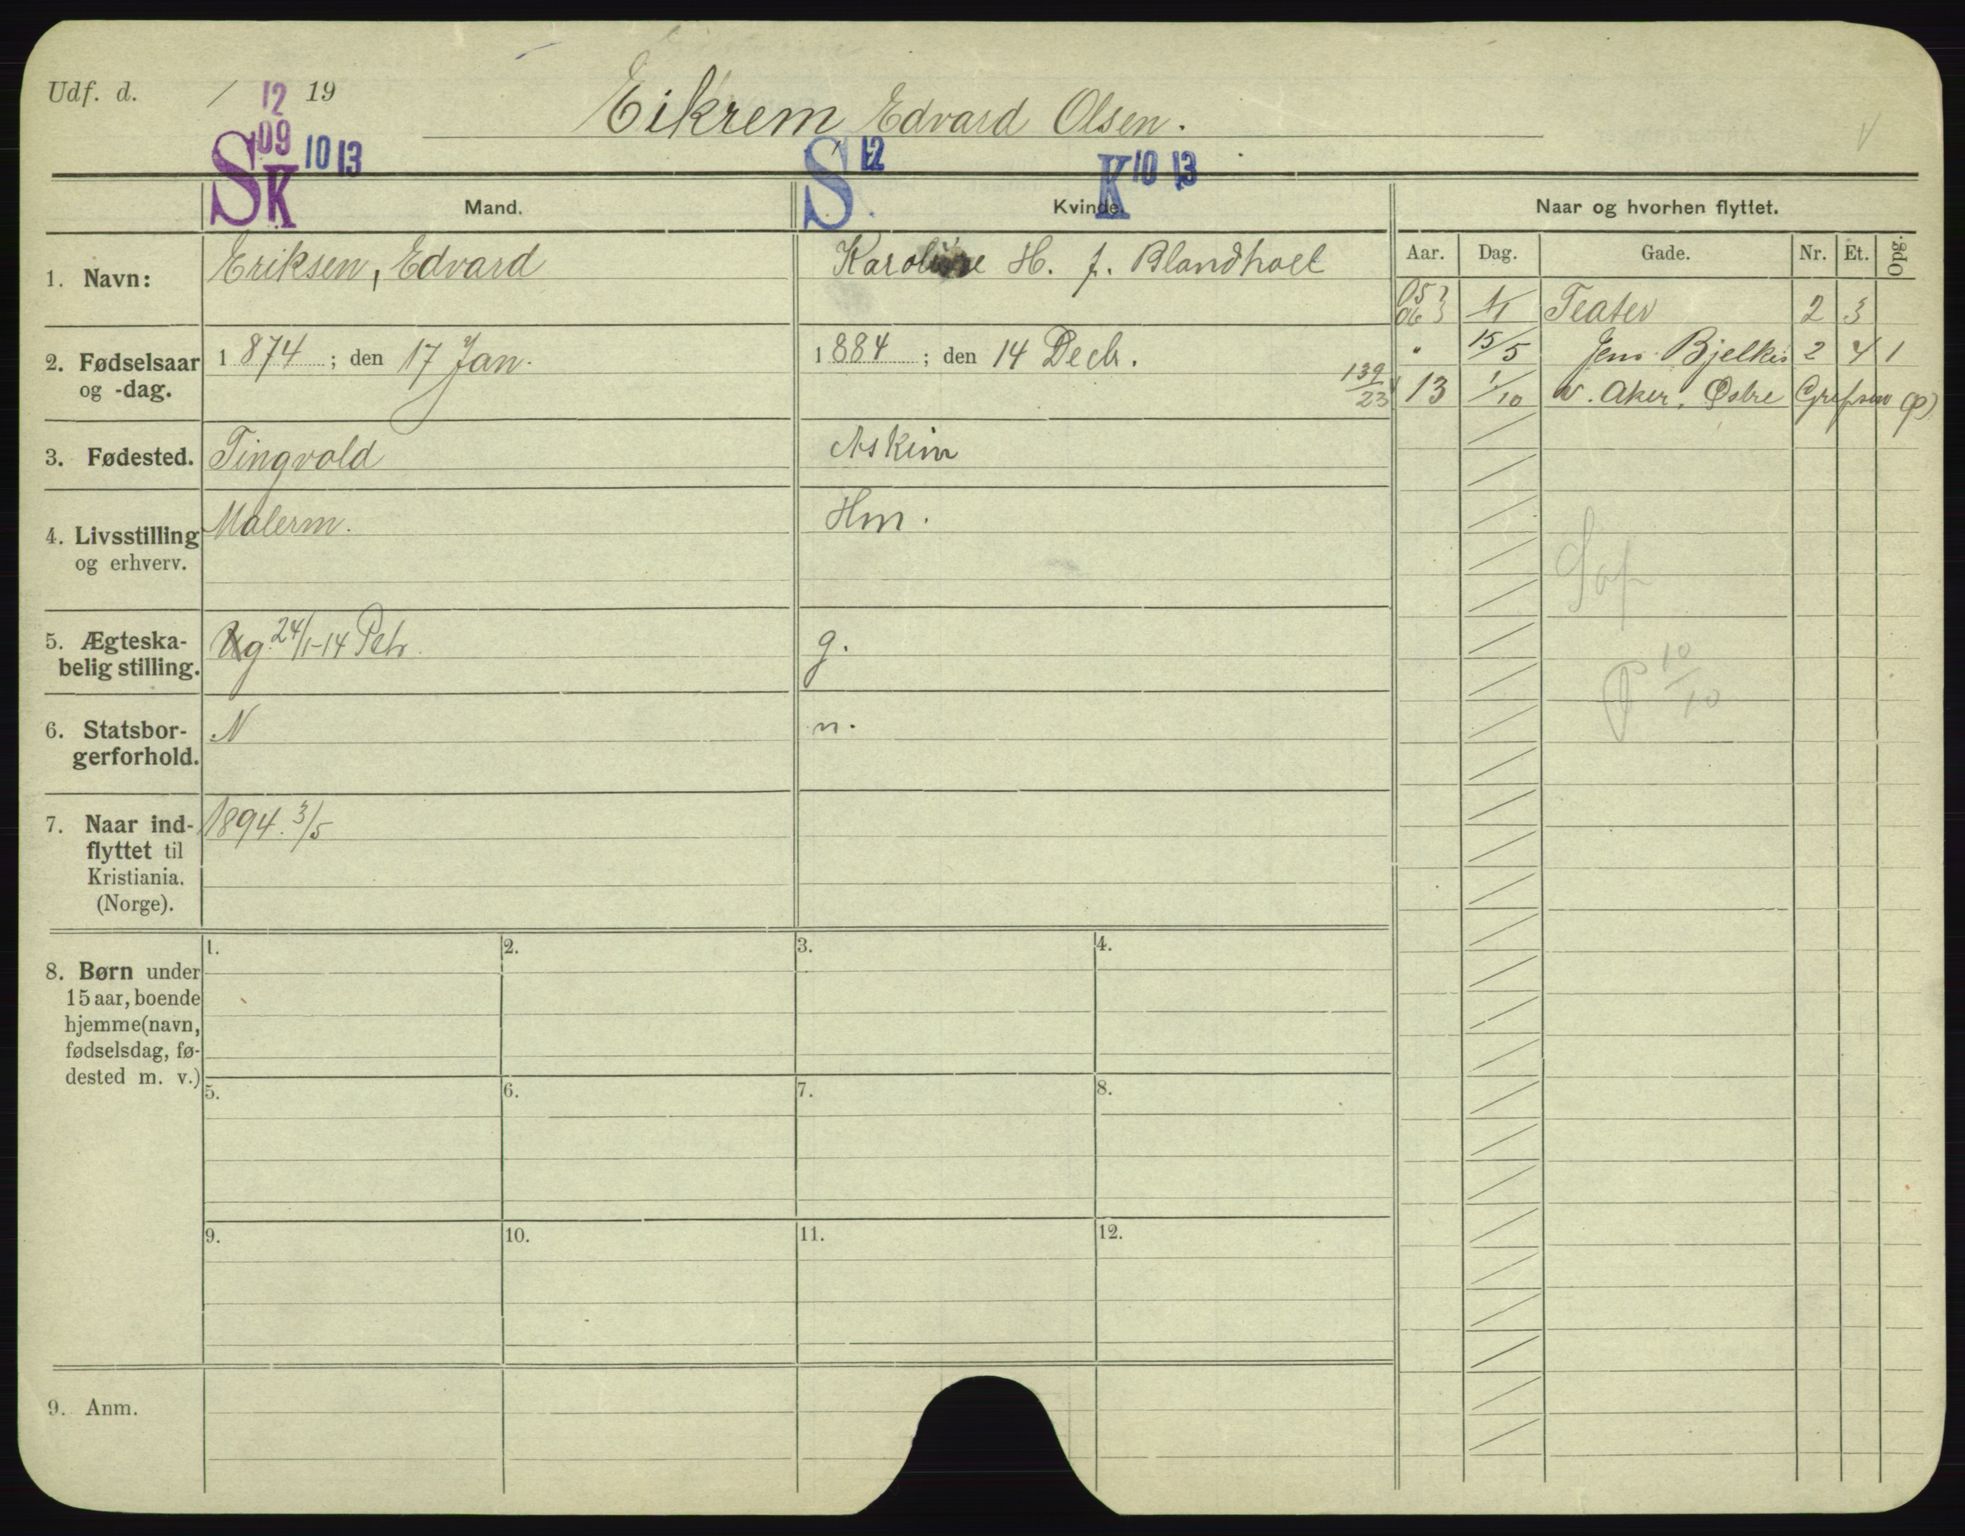 Udf. d. / 12 19
Eikrem Edvard Olsen.
S 09 K 10 13
S 12 K 10 13
Mand.
Kvinde.
Naar og hvorhen flyttet.
Aar. Dag. Gade. Nr. Et. Opg.
1. Navn: Eriksen, Edvard
Karoline H. f.
05 06 1/1 Teater 2 3
" 15/5 Jens Bjelkes 2 4 1
139/23 13 1/10 v. Aker, Østre Grefsen (P)
2. Fødselsaar og -dag. 1874; den 17 Jan.
1884; den 14 Decb.
3. Fødested. Tingvold
Askim
4. Livsstilling og erhverv. Malerm.
Hm.
5. Ægteska-
belig stilling. Ug 24/1-14 Petr.
g.
6. Statsbor-
gerforhold. N
n.
P 10/10
7. Naar ind-
flyttet til
Kristiania.
(Norge).
1894. 3/5
8. Børn under
15 aar, boende
hjemme (navn,
fødselsdag, fø-
dested m. v.)
1. 2. 3. 4.
5. 6. 7. 8.
9. 10. 11. 12.
9. Anm.